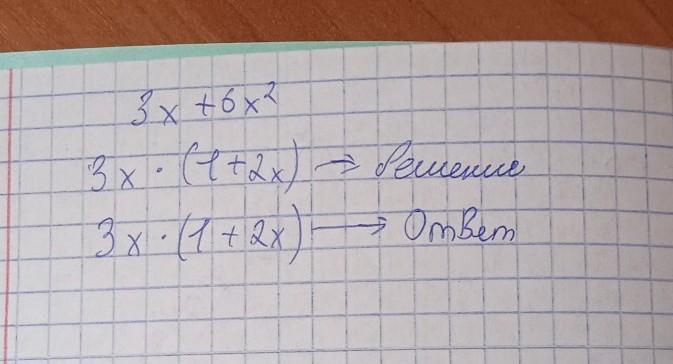 3x + 6x²
3x · (1 + 2x) → Решение
3x · (1 + 2x) → Ответ